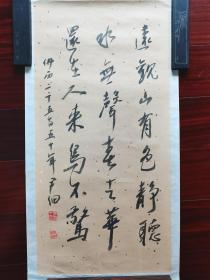 遠觀山有色靜聽
水無聲春去華
還在人来鳥不驚
二千五百五十年